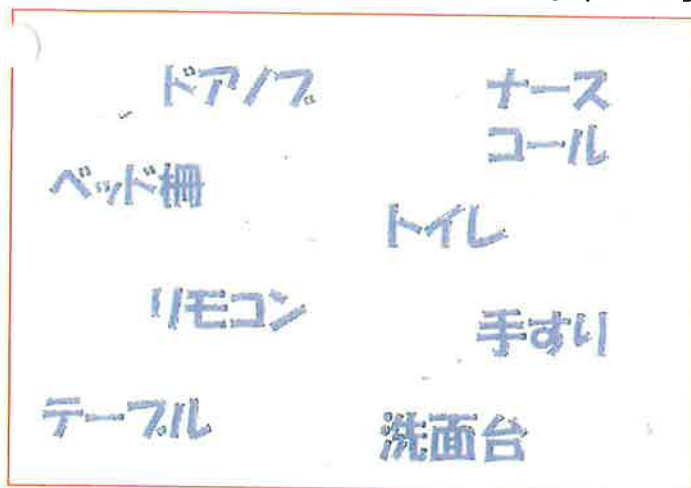 ドアノブ
ナース
コール
ベッド柵
トイレ
リモコン
手すり
テーブル
洗面台